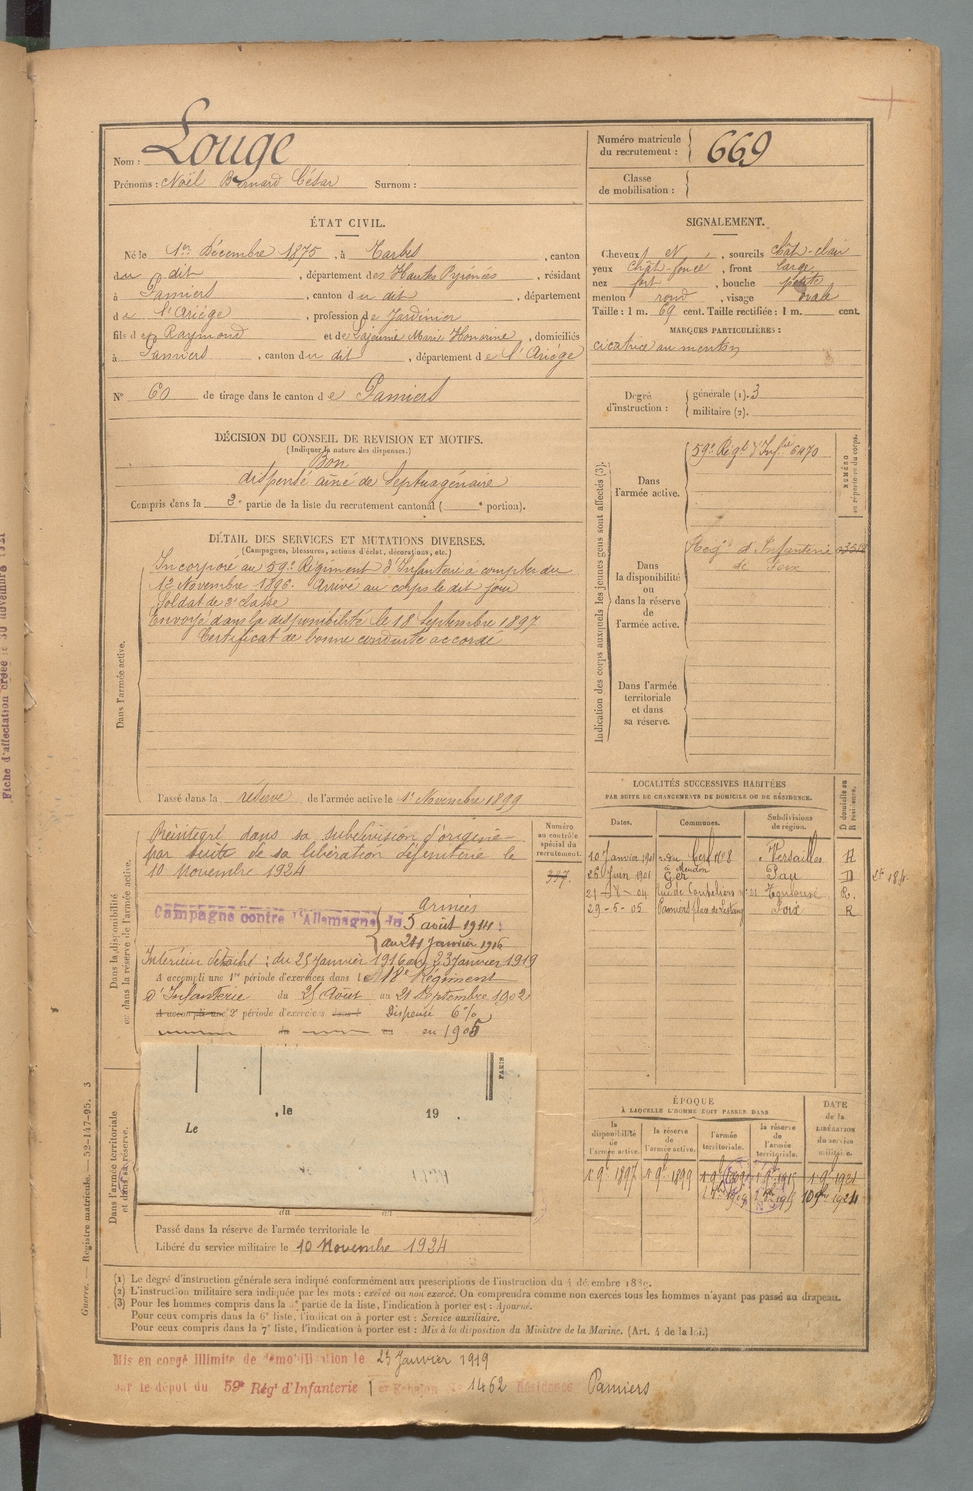 Nom : Louge
Prénoms : Noël Bernard César Surnom :
Numéro matricule du recrutement : 669
Classe de mobilisation :
ÉTAT CIVIL.
Né le 1er Décembre 1875, à Tarbes, canton
du dit, département des Hautes Pyrénées, résidant
à Pamiers, canton du dit, département
de l'Ariège, profession de Jardinier
fils de Raymond et de Lajeune Marie Honorine, domiciliés
à Pamiers, canton du dit, département de l'Ariège
N° 60 de tirage dans le canton de Pamiers
SIGNALEMENT.
Cheveux N, sourcils Chât-clair
yeux Chât-foncé, front large
nez fort, bouche petite
menton rond, visage ovale
Taille : 1 m. 69 cent. Taille rectifiée : 1 m. cent.
MARQUES PARTICULIÈRES :
cicatrice au menton
Degré d'instruction : générale (1). 3
militaire (2).
DÉCISION DU CONSEIL DE REVISION ET MOTIFS.
(Indiquer la nature des dispenses.)
Bon
dispensé aîné de Septuagénaire
Compris dans la 2e partie de la liste du recrutement cantonal ( e portion).
DÉTAIL DES SERVICES ET MUTATIONS DIVERSES.
(Campagnes, blessures, actions d'éclat, décorations, etc.)
Dans l'armée active.
Incorporé au 59e Régiment d'Infanterie à compter du
12 Novembre 1896. Arrivé au corps le dit jour
Soldat de 2e classe
Envoyé dans la disponibilité le 18 Septembre 1897
Certificat de bonne conduite accordé
Passé dans la réserve de l'armée active le 1er Novembre 1899
Indication des corps auxquels les jeunes gens sont affectés (3).
NUMÉRO au répertoire du corps.
Dans l'armée active.
59e Régt d'Infie 6470
Dans la disponibilité ou dans la réserve de l'armée active.
Régt d'Infanterie
de Foix
Dans l'armée territoriale et dans sa réserve.
Dans la disponibilité ou dans la réserve de l'armée active.
Réintégré dans sa subdivision d'origine
par suite de sa libération définitive le
10 Novembre 1924
Numéro au contrôle spécial du recrutement.
337.
Armées
Campagne contre l'Allemagne du 5 août 1914
au 24 Janvier 1916
Intérieur : du 25 Janvier 1916 au 23 Janvier 1919
A accompli une 1re période d'exercices dans le 18e Régiment
d'Infanterie du 25 Août au 21 Septembre 1902
A accompli une 2e période d'exercices dans l Dispensé 6%
en 1905
LOCALITÉS SUCCESSIVES HABITÉES
PAR SUITE DE CHANGEMENTS DE DOMICILE OU DE RÉSIDENCE.
Dates. Communes. Subdivisions de région. D domicile ou R résidence.
10 Janvier 1901 r. du Cerf n°8 Versailles R
à Meudon
26 Juin 1901 Ger Pau D
Toulouse R.
29-5-05 Pamiers place de Lestang Foix R
PARIS
Le , le 19 .
Dans l'armée territoriale et dans sa réserve.
du au
Passé dans la réserve de l'armée territoriale le
Libéré du service militaire le 10 Novembre 1924
ÉPOQUE
À LAQUELLE L'HOMME DOIT PASSER DANS
la disponibilité de l'armée active.
la réserve de l'armée active.
l'armée territoriale.
la réserve de l'armée territoriale.
DATE de la LIBÉRATION du service militaire.
(1) Le degré d'instruction générale sera indiqué conformément aux prescriptions de l'instruction du 4 décembre 1889.
(2) L'instruction militaire sera indiquée par les mots : exercé ou non exercé. On comprendra comme non exercés tous les hommes n'ayant pas passé au drapeau.
(3) Pour les hommes compris dans la 5e partie de la liste, l'indication à porter est : Ajourné.
Pour ceux compris dans la 6e liste, l'indication à porter est : Service auxiliaire.
Pour ceux compris dans la 7e liste, l'indication à porter est : Mis à la disposition du Ministre de la Marine. (Art. 4 de la loi.)
Mis en congé illimité de démobilisation le 23 Janvier 1919
par le dépôt du 59e Régt d'Infanterie 1er Echelon No 1462 Résidence Pamiers
Guerre. — Registre matricule. — 52-147-95. 3
Fiche d'affectation créée le 30 novembre 1921